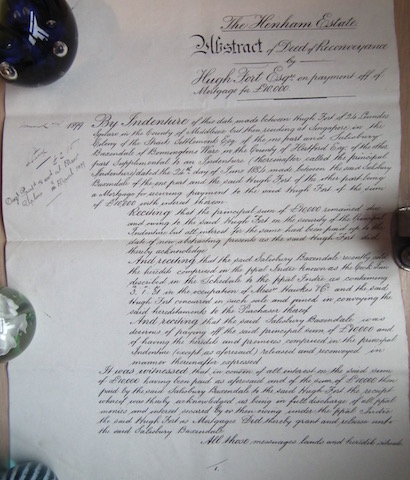 The Henham Estate
Abstract of Deed of Reconveyance
by
Hugh Fort Esqre on payment off of
Mortgage for £10,000
1899 By Indenture of this date made between Hugh Fort of
Square in the County of Middlesex but then residing at Singapore in the
Colony of the Straits Settlement Esq of the one part and Salisbury
Baxendale of Bonningtons Ware in the County of Hertford Esq of the other
part Supplemental to an Indenture (thereinafter called the principal
Indenture) dated the 24th day of June 1885 made between the said Salisbury
Baxendale of the one part and the said Hugh Fort of the other part being
a Mortgage for securing payment to the said Hugh Fort of the sum
of £10,000 with interest thereon
Reciting that the principal sum of £10000 remained due
and owing to the said Hugh Fort on the security of the Principal
Indenture but all interest for the same had been paid up to the
date of now abstracting presents as the said Hugh Fort did
thereby acknowledge
And reciting that the said Salisbury Baxendale recently sold
the heredits comprised in the ppal Indre known as the Cock Inn
described in the Schedule to the ppal Indre as containing
in the occupation of Hawkes & Co and the said
Hugh Fort concurred in such sale and joined in conveying the
said hereditaments to the Purchaser thereof
And reciting that the said Salisbury Baxendale was
desirous of paying off the said principal sum of £10000 and
of having the heredits and premises comprised in the principal
Indenture (except as aforesaid) released and reconveyed in
manner thereinafter expressed
It was witnessed that in conson of all interest on the said sum
of £10000 having been paid as aforesaid and of the sum of £10000 then
paid by the said Salisbury Baxendale to the said Hugh Fort the receipt
whereof was thereby acknowledged as being in full discharge of all ppal
monies and interest secured by or then owing under the ppal Indre
the said Hugh Fort as Mortgagee Did thereby grant and release unto
the said Salisbury Baxendale
All those messuages lands and heredits situate
1